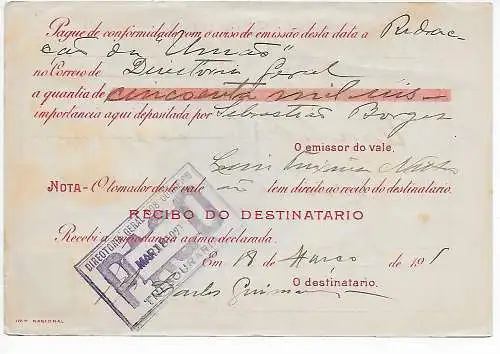 Pague de conformidade com o aviso de emissão desta data a Redac-
ção da "União"
no Correio de Directoria Geral
a quantia de cincoenta mil reis
importancia aqui depositada por Sebastião Borges
O emissor do vale.
Luis
NOTA - O tomador deste vale não tem direito ao recibo do destinatario.
RECIBO DO DESTINATARIO
Recebi a importancia acima declarada.
DIRECTORIA GERAL DOS CORREIOS
PAGO
MARTE
THESOURARIA
Em 18 de Março de 191
O destinatario.
Carlos
IMP. NACIONAL